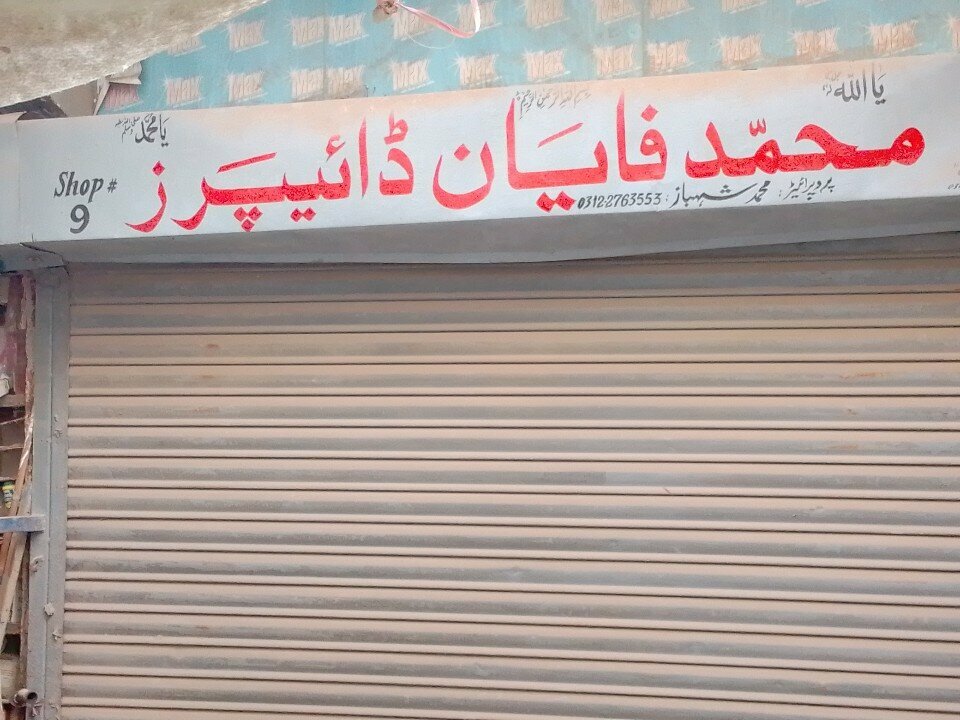 Max Max Max Max Max
Max Max Max Max Max Max Max
یا اللہ
بسم اللہ الرحمٰن الرحیم
یا محمد ﷺ
محمد فایان ڈائیپرز
پروپرائیٹر: محمد شہباز: 0312-2763553
Shop #
9